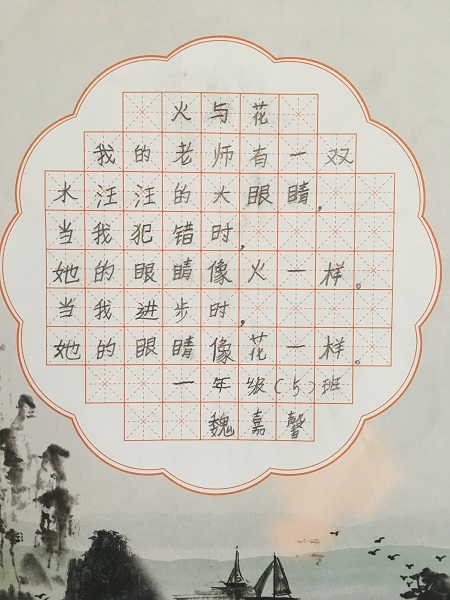 火与花
我的老师有一双
水汪汪的大眼睛，
当我犯错时，
她的眼睛像火一样。
当我进步时，
她的眼睛像花一样。
一年级（5）班
魏嘉馨